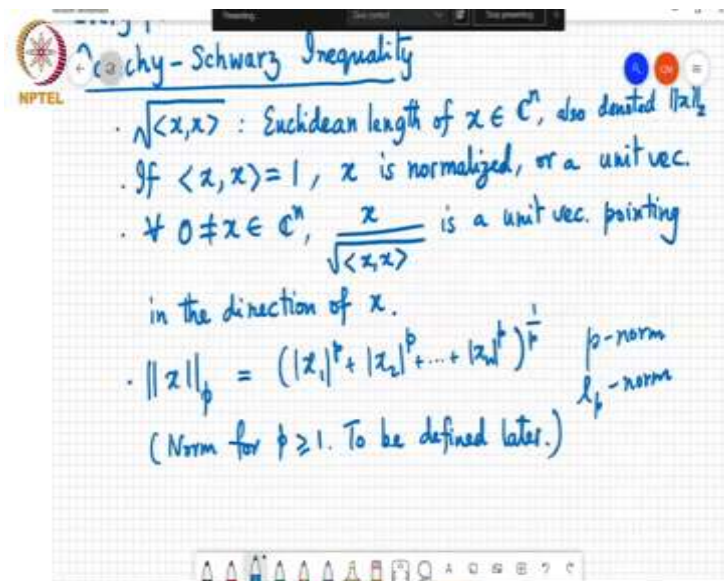 Cauchy-Schwarz Inequality
NPTEL
· √<x,x> : Euclidean length of x ∈ ℂⁿ, also denoted ||x||₂
· If <x,x> = 1, x is normalized, or a unit vec.
· ∀ 0 ≠ x ∈ ℂⁿ, x/√<x,x> is a unit vec. pointing
in the direction of x.
· ||x||ₚ = (|x₁|ᵖ + |x₂|ᵖ + ... + |xₙ|ᵖ)^(1/p) p-norm
lₚ-norm
(Norm for p ≥ 1. To be defined later.)